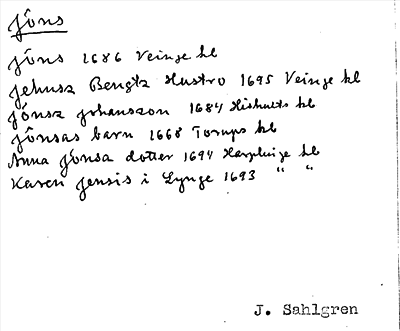 Jöns
Jöns 1686 Veinge kl
Jehnsz Bengtz Hustro 1695 Veinge kl
Jönsz Johansson 1684 Hishults kl
Jönsas barn 1668 Torups kl
Anna Jönsa dotter 1694 Harplinge kl
Karen Jensis i Lynge 1693 " "
J. Sahlgren